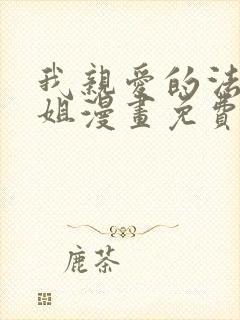 我親愛的法
姐漫畫免費
鹿茶